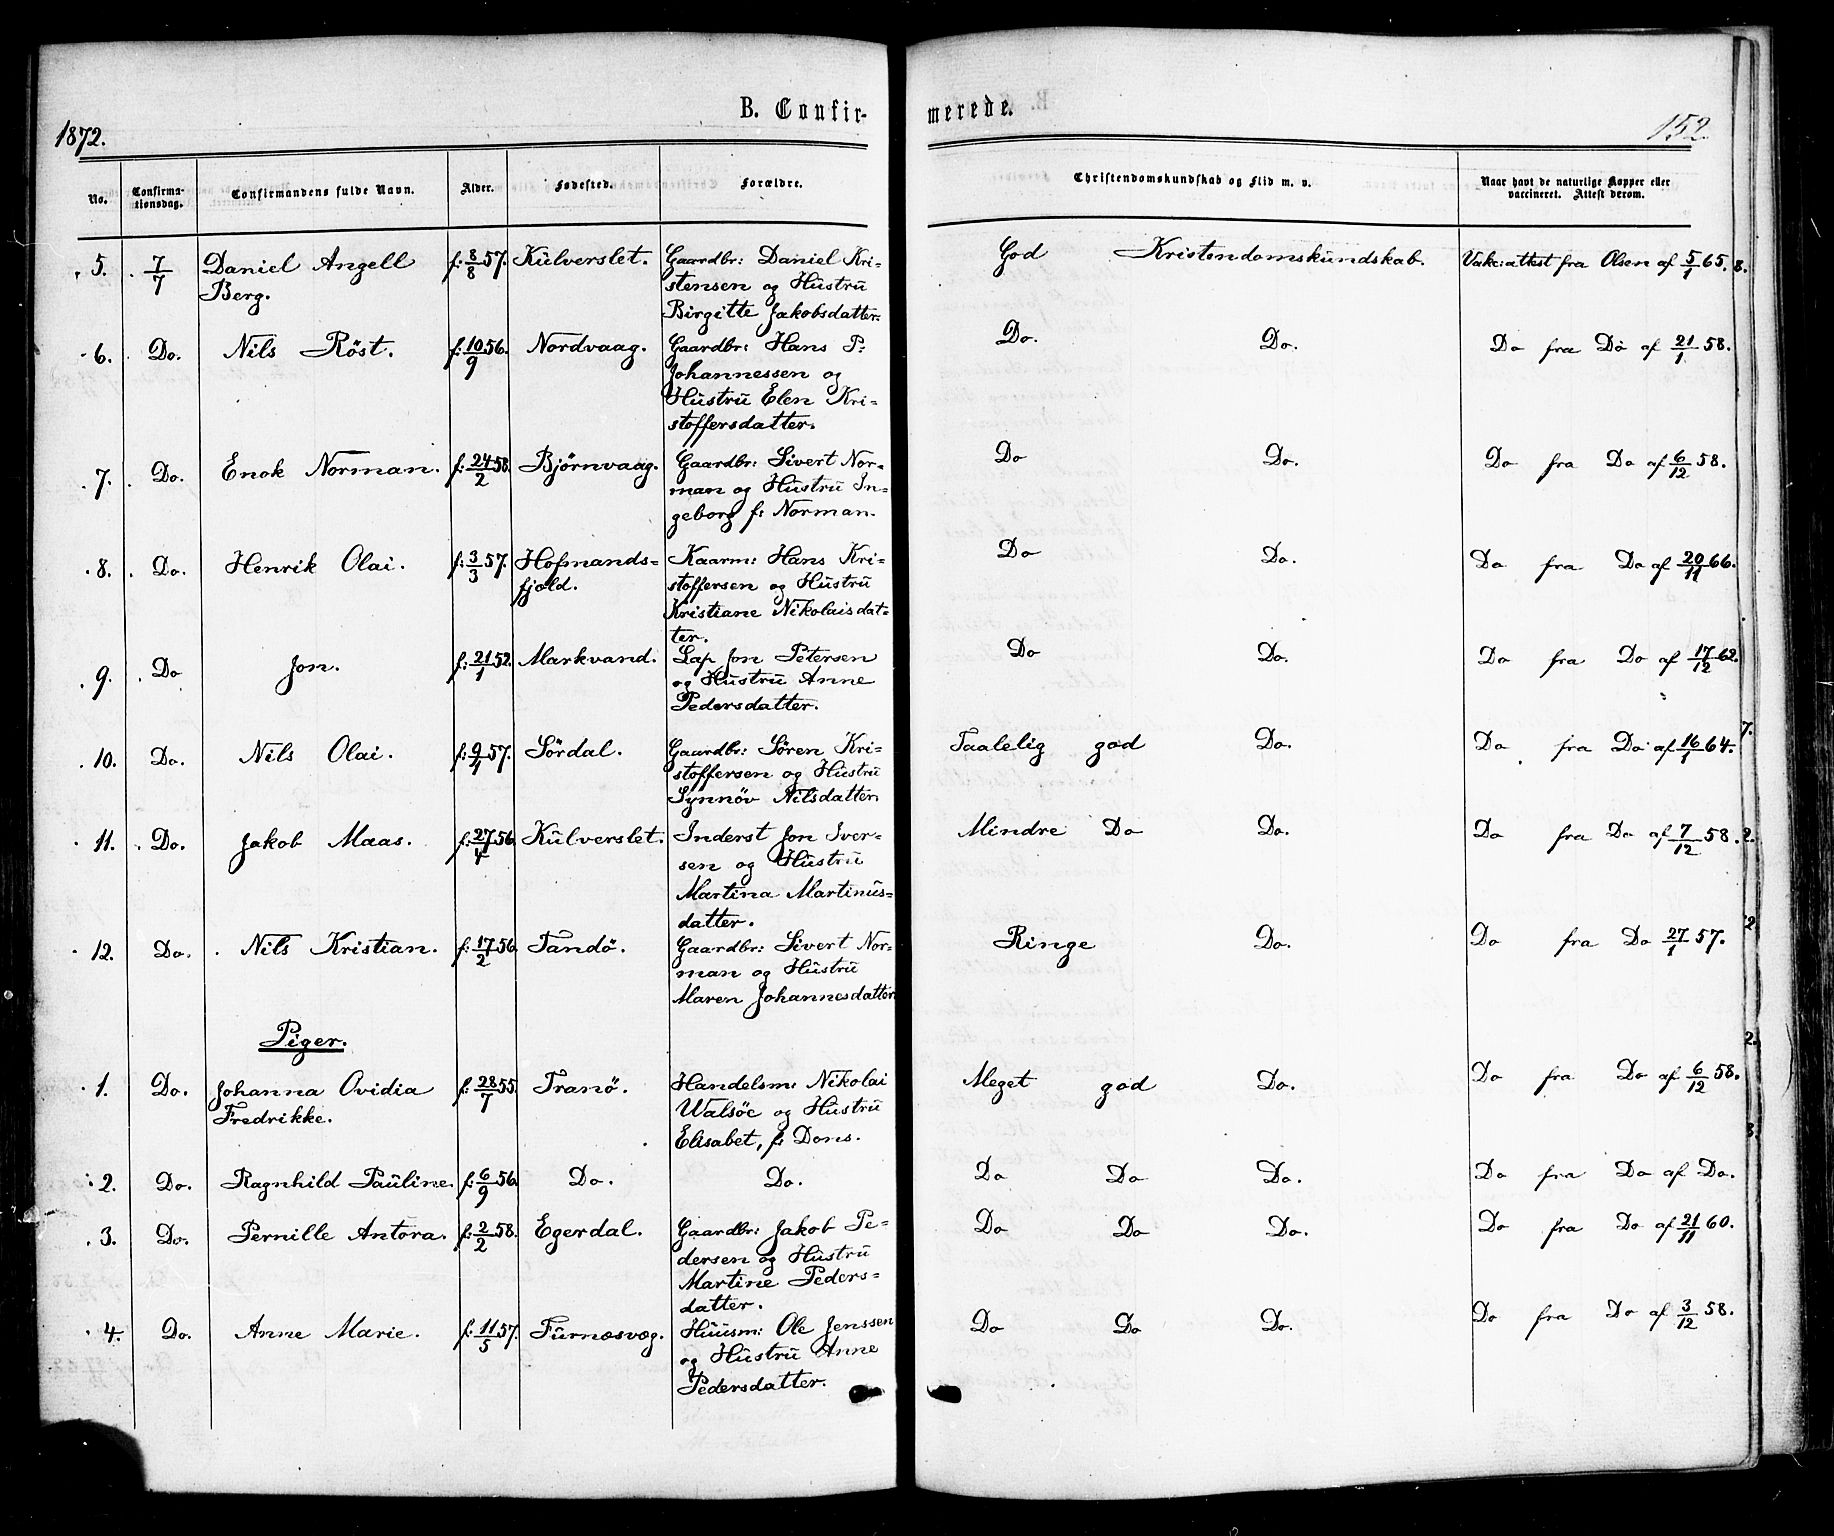 B. Confir-
merede.
1872.
152.
No.
Confirma-
tionsdag.
Confirmandens fulde Navn.
Alder.
Fødested.
Forældre.
Christendomskundskab og Flid m. v.
Naar havt de naturlige Kopper eller
vaccineret. Attest derom.
5. 7/7 Daniel Angell f: 8/8 57. Kulverslet. Gaardbr: Daniel Kri- God Kristendomskundskab. Vakc: attest fra Olsen af 5/1 65.
Berg. stensen og Hustru
Birgitte Jakobsdatter.
6. Do. Nils Röst. f: 10/9 56. Nordvaag. Gaardbr: Hans P: Do. Do. Do fra Do af 21/1 58.
Johannessen og
Hustru Elen Kri-
stoffersdatter.
7. Do. Enok Norman. f: 24/2 58. Bjørnvaag. Gaardbr: Sivert Nor- Do Do. Do fra Do af 6/12 58.
man og Hustru In-
geborg f: Norman.
8. Do. Henrik Olai. f: 3/3 57. Hofmands- Kaarm: Hans Kri- Do Do. Do fra Do af 20/11 66.
fjeld. stoffersen og Hustru
Kristiane Nikolaisdat-
ter.
9. Do Jon. f: 21/1 52. Markvand. Lap Jon Petersen Do Do. Do fra Do af 17/12 62.
og Hustru Anne
Pedersdatter.
10. Do. Nils Olai. f: 9/1 57. Sördal. Gaardbr: Sören Kri- Taalelig god Do. Do fra Do af 16/1 64.
stoffersen og Hustru
Synnöv Nilsdatter.
11. Do. Jakob Maas. f: 27/4 56. Kulverslet. Inderst Jon Iver- Mindre Do Do. Do fra Do af 7/12 58.
sen og Hustru
Martina Martinus-
datter.
12. Do. Nils Kristian. f: 17/2 56. Tandö. Gaardbr: Sivert Nor- Ringe Do. Do fra Do 27/1 57.
man og Hustru
Maren Johannesdatter
Piger.
1. Do. Johanna Ovidia f: 28/7 55. Tranö. Handelsm: Nikolai Meget god Do. Do fra Do af 6/12 58.
Fredrikke. Walsöe og Hustru
Elisabet, f: Dons.
2. Do. Ragnhild Pauline. f: 6/9 56. Do. Do. Do Do Do. Do fra Do af Do.
3. Do. Pernille Antora. f: 2/2 58. Egerdal. Gaardbr: Jakob Pe- Do Do Do. Do fra Do af 21/11 60.
dersen og Hustru
Martine Peders-
datter.
4. Do. Anne Marie. f: 11/5 57. Furnæsvæg. Huusm: Ole Jenssen Do Do Do. Do fra Do af 3/12 58.
og Hustru Anne
Pedersdatter.